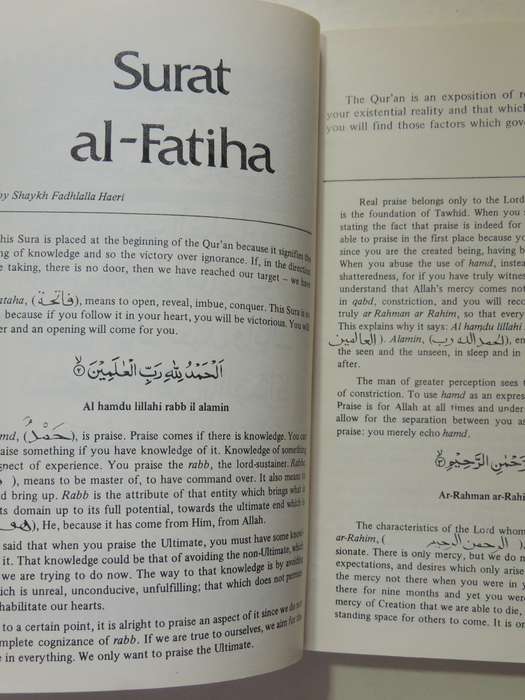 Surat
al-Fatiha
by Shaykh Fadhlalla Haeri
his Sura is placed at the beginning of the Qur'an because it signifies the
ng of knowledge and so the victory over ignorance. If, in the direction
e taking, there is no door, then we have reached our target – we have
ataha, (فَاتِحَة), means to open, reveal, imbue, conquer. This Sura is so
because if you follow it in your heart, you will be victorious. You will
er and an opening will come for you.
اَلْحَمْدُ لِلّٰهِ رَبِّ الْعٰلَمِيْنَ ﴿٢﴾
Al hamdu lillahi rabb il alamin
md, (حَمْدٌ), is praise. Praise comes if there is knowledge. You can
raise something if you have knowledge of it. Knowledge of something
spect of experience. You praise the rabb, the lord-sustainer: Rabba
), means to be master of, to have command over. It also means to
d bring up. Rabb is the attribute of that entity which brings what is
ts domain up to its full potential, towards the ultimate end which is
(هو), He, because it has come from Him, from Allah.
said that when you praise the Ultimate, you must have some know-
it. That knowledge could be that of avoiding the non-Ultimate, which
we are trying to do now. The way to that knowledge is by avoiding
hich is unreal, unconducive, unfulfilling; that which does not permit
habilitate our hearts.
to a certain point, it is alright to praise an aspect of it since we do not
mplete cognizance of rabb. If we are true to ourselves, we aim for the
e in everything. We only want to praise the Ultimate.
The Qur'an is an exposition of re
your existential reality and that which
you will find those factors which gove
Real praise belongs only to the Lord
is the foundation of Tawhid. When you s
stating the fact that praise is indeed for
able to praise in the first place because yo
since you are the created being, having b
When you abuse the use of hamd, instead
shatteredness, for if you have truly witness
understand that Allah's mercy comes not
in qabd, constriction, and you will reco
truly ar-Rahman ar Rahim, so that every
This explains why it says: Al hamdu lillahi r
(الحمد لله رب العالمين). Alamin, en
the seen and the unseen, in sleep and in
after.
The man of greater perception sees th
of constriction. To use hamd as an expres
Praise is for Allah at all times and under
allow for the separation between you a
praise: you merely echo hamd.
رَحْمٰنِ الرَّحِيْمِ ﴿٣﴾
Ar-Rahman ar-Rahi
The characteristics of the Lord whom
ar-Rahim, (الرحمن الرحيم
sionate. There is only mercy, but we do n
expectations, and desires which only arise
the mercy not there when you were in y
there for nine months and yet you were
mercy of Creation that we are able to die,
standing space for others to come. It is on